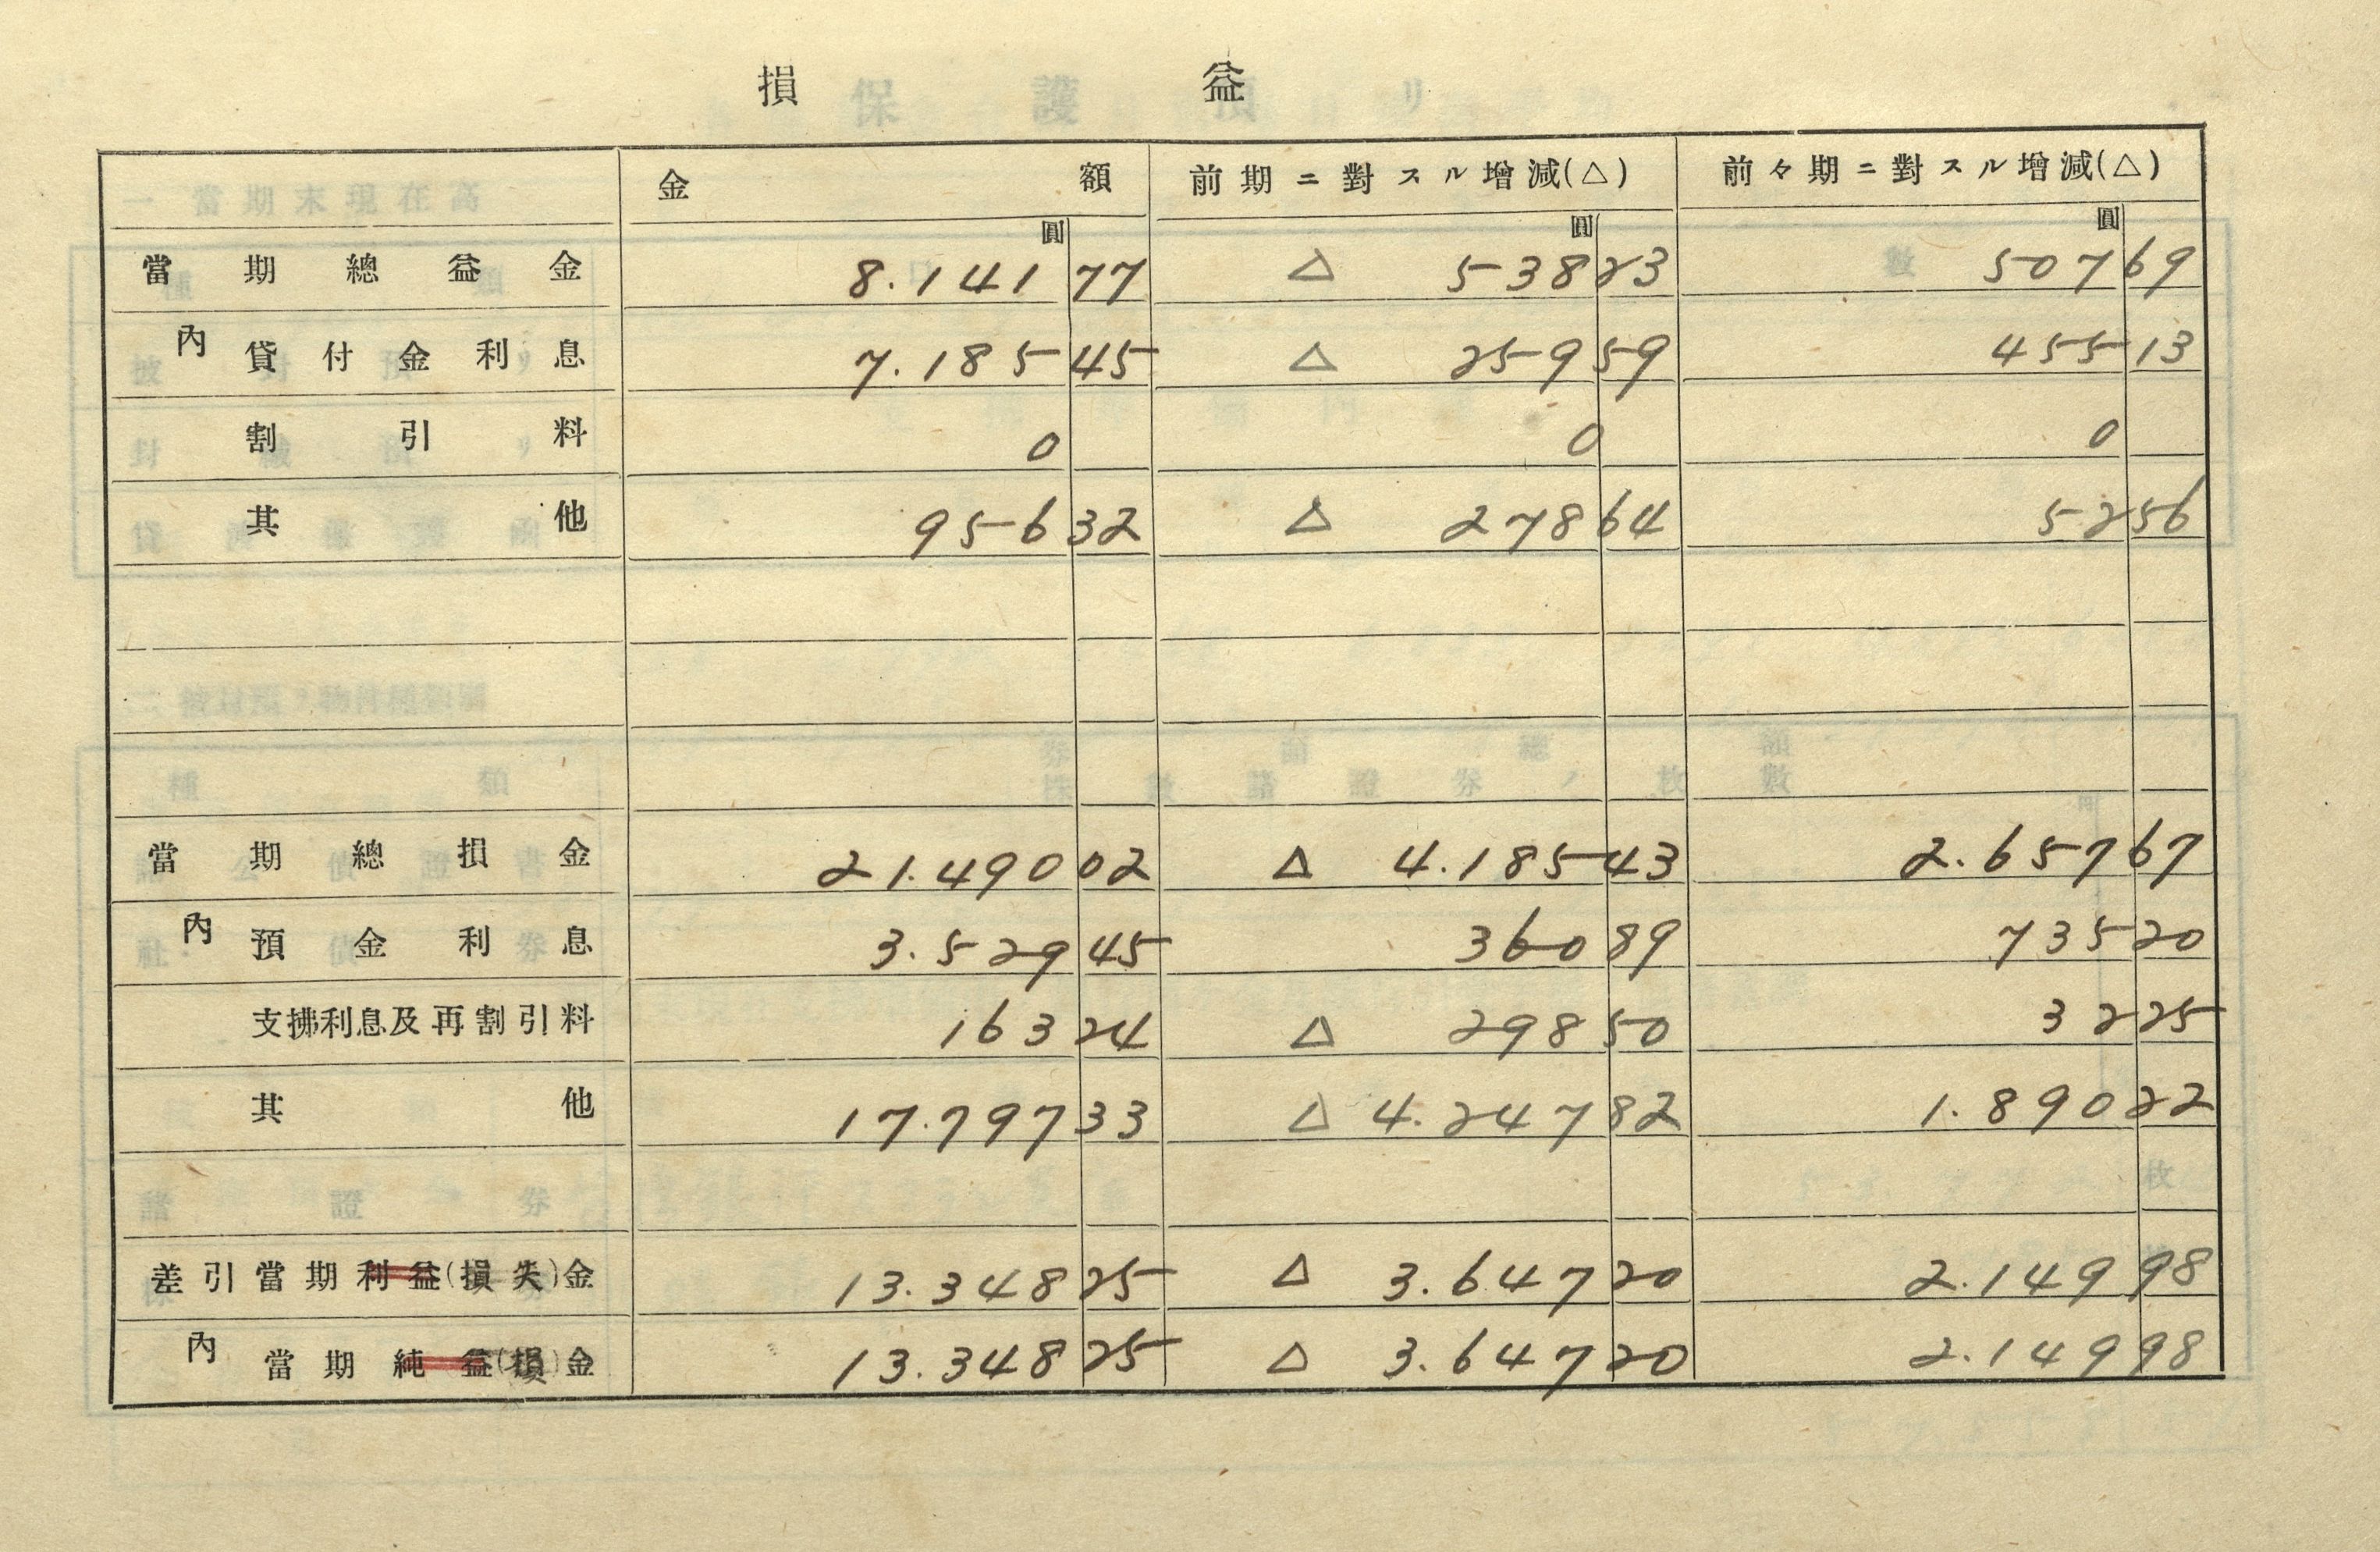 損益
金額 前期ニ對スル增減(△) 前々期ニ對スル增減(△)
圓 圓 圓
當期總益金 8.141 77 △ 538 23 507 69
內 貸付金利息 7.185 45 △ 259 59 455 13
割引料 0 0 0
其他 956 32 △ 278 64 52 56
當期總損金 21.490 02 △ 4.185 43 2.657 67
內 預金利息 3.529 45 360 89 735 20
支拂利息及再割引料 163 24 △ 298 50 32 25
其他 17.797 33 △ 4.247 82 1.890 22
差引當期利益(損失)金 13.348 25 △ 3.647 20 2.149 98
內 當期純益(損)金 13.348 25 △ 3.647 20 2.149 98